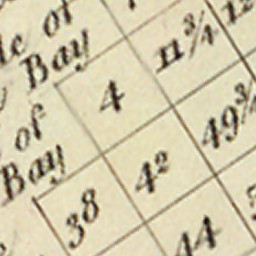 of
Bay
11 3/4
of
Bay
4
49 3/4
38
4²
44